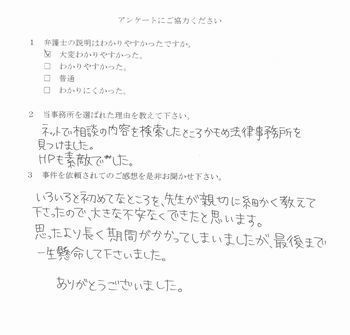 アンケートにご協力ください
1 弁護士の説明はわかりやすかったですか。
☑ 大変わかりやすかった。
□ わかりやすかった。
□ 普通
□ わかりにくかった。
2 当事務所を選ばれた理由を教えて下さい。
ネットで相談の内容を検索したところかもめ法律事務所を
見つけました。
HPも素敵でした。
3 事件を依頼されてのご感想を是非お聞かせ下さい。
いろいろと初めてなところを、先生が親切に細かく教えて
下さったので、大きな不安なくできたと思います。
思ったより長く期間がかかってしまいましたが、最後まで
一生懸命して下さいました。
ありがとうございました。